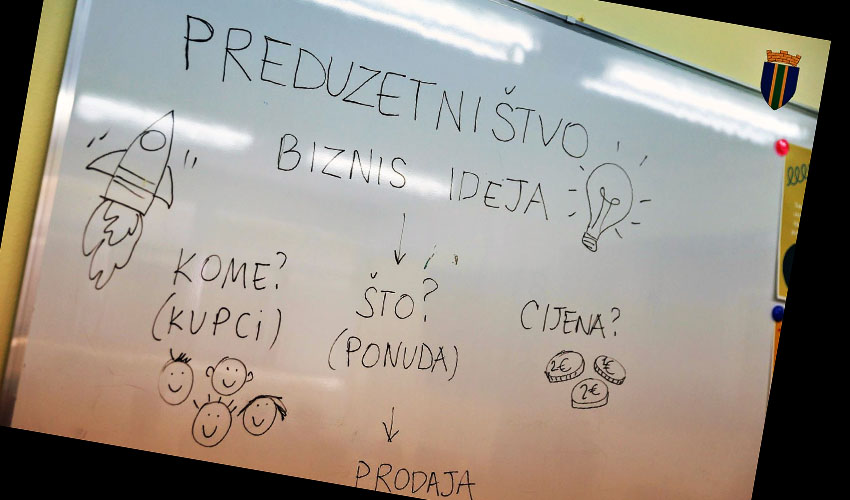 PREDUZETNIŠTVO
BIZNIS IDEJA
KOME?
(KUPCi)
ŠTO?
(PONUDA)
CIJENA?
2€
2€
PRODAJA